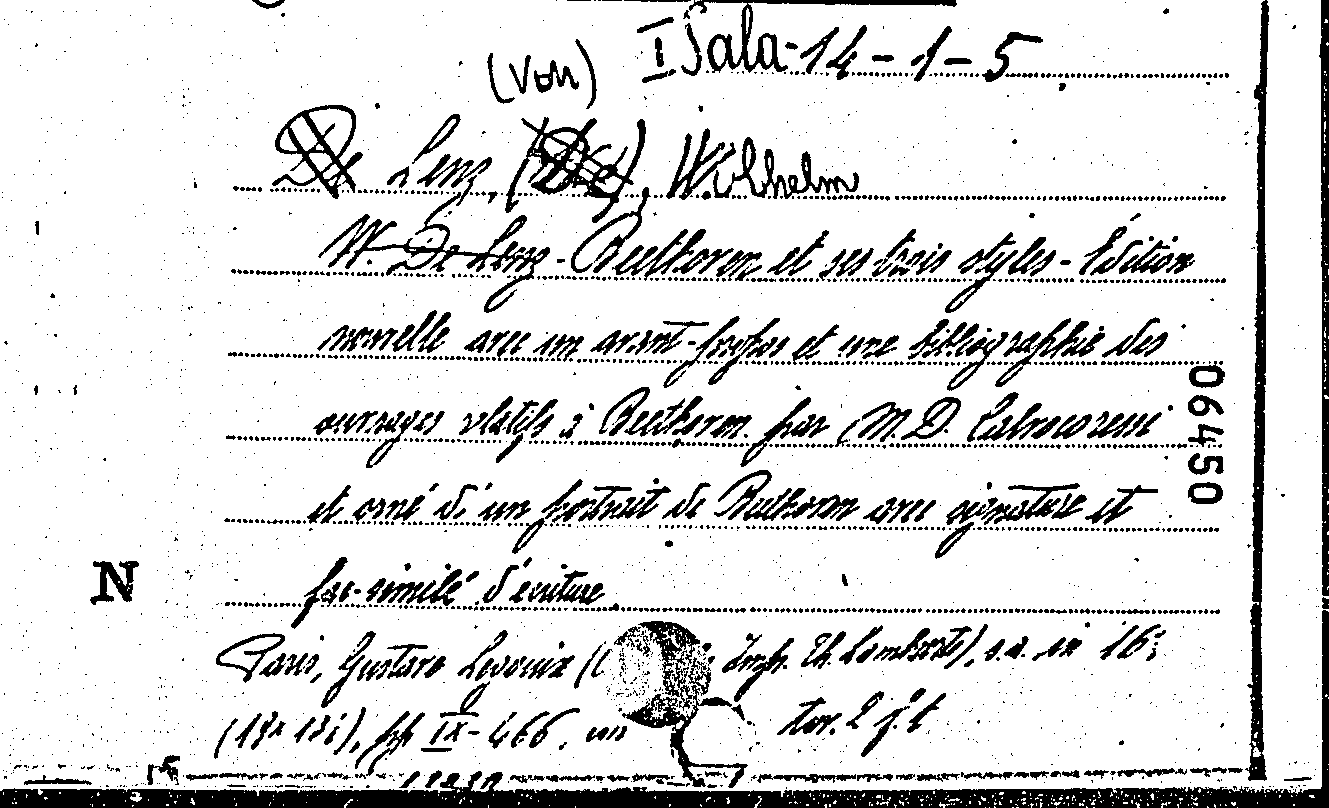 I Sala-14-1-5
(Von)
De Lenz, (De), Wilhelm
W. De Lenz - Beethoven et ses trois styles - Édition
nouvelle avec un avant-propos et une bibliographie des
ouvrages relatifs à Beethoven par M.D. Calvocoressi
et orné d'un portrait de Beethoven avec signature et
fac-similé d'écriture
06450
N
Paris, Gustave Legouix ( Impr. Th. Lombaerts), s.a. in 16º;
pp. IX-466, un tav. 2 f.t